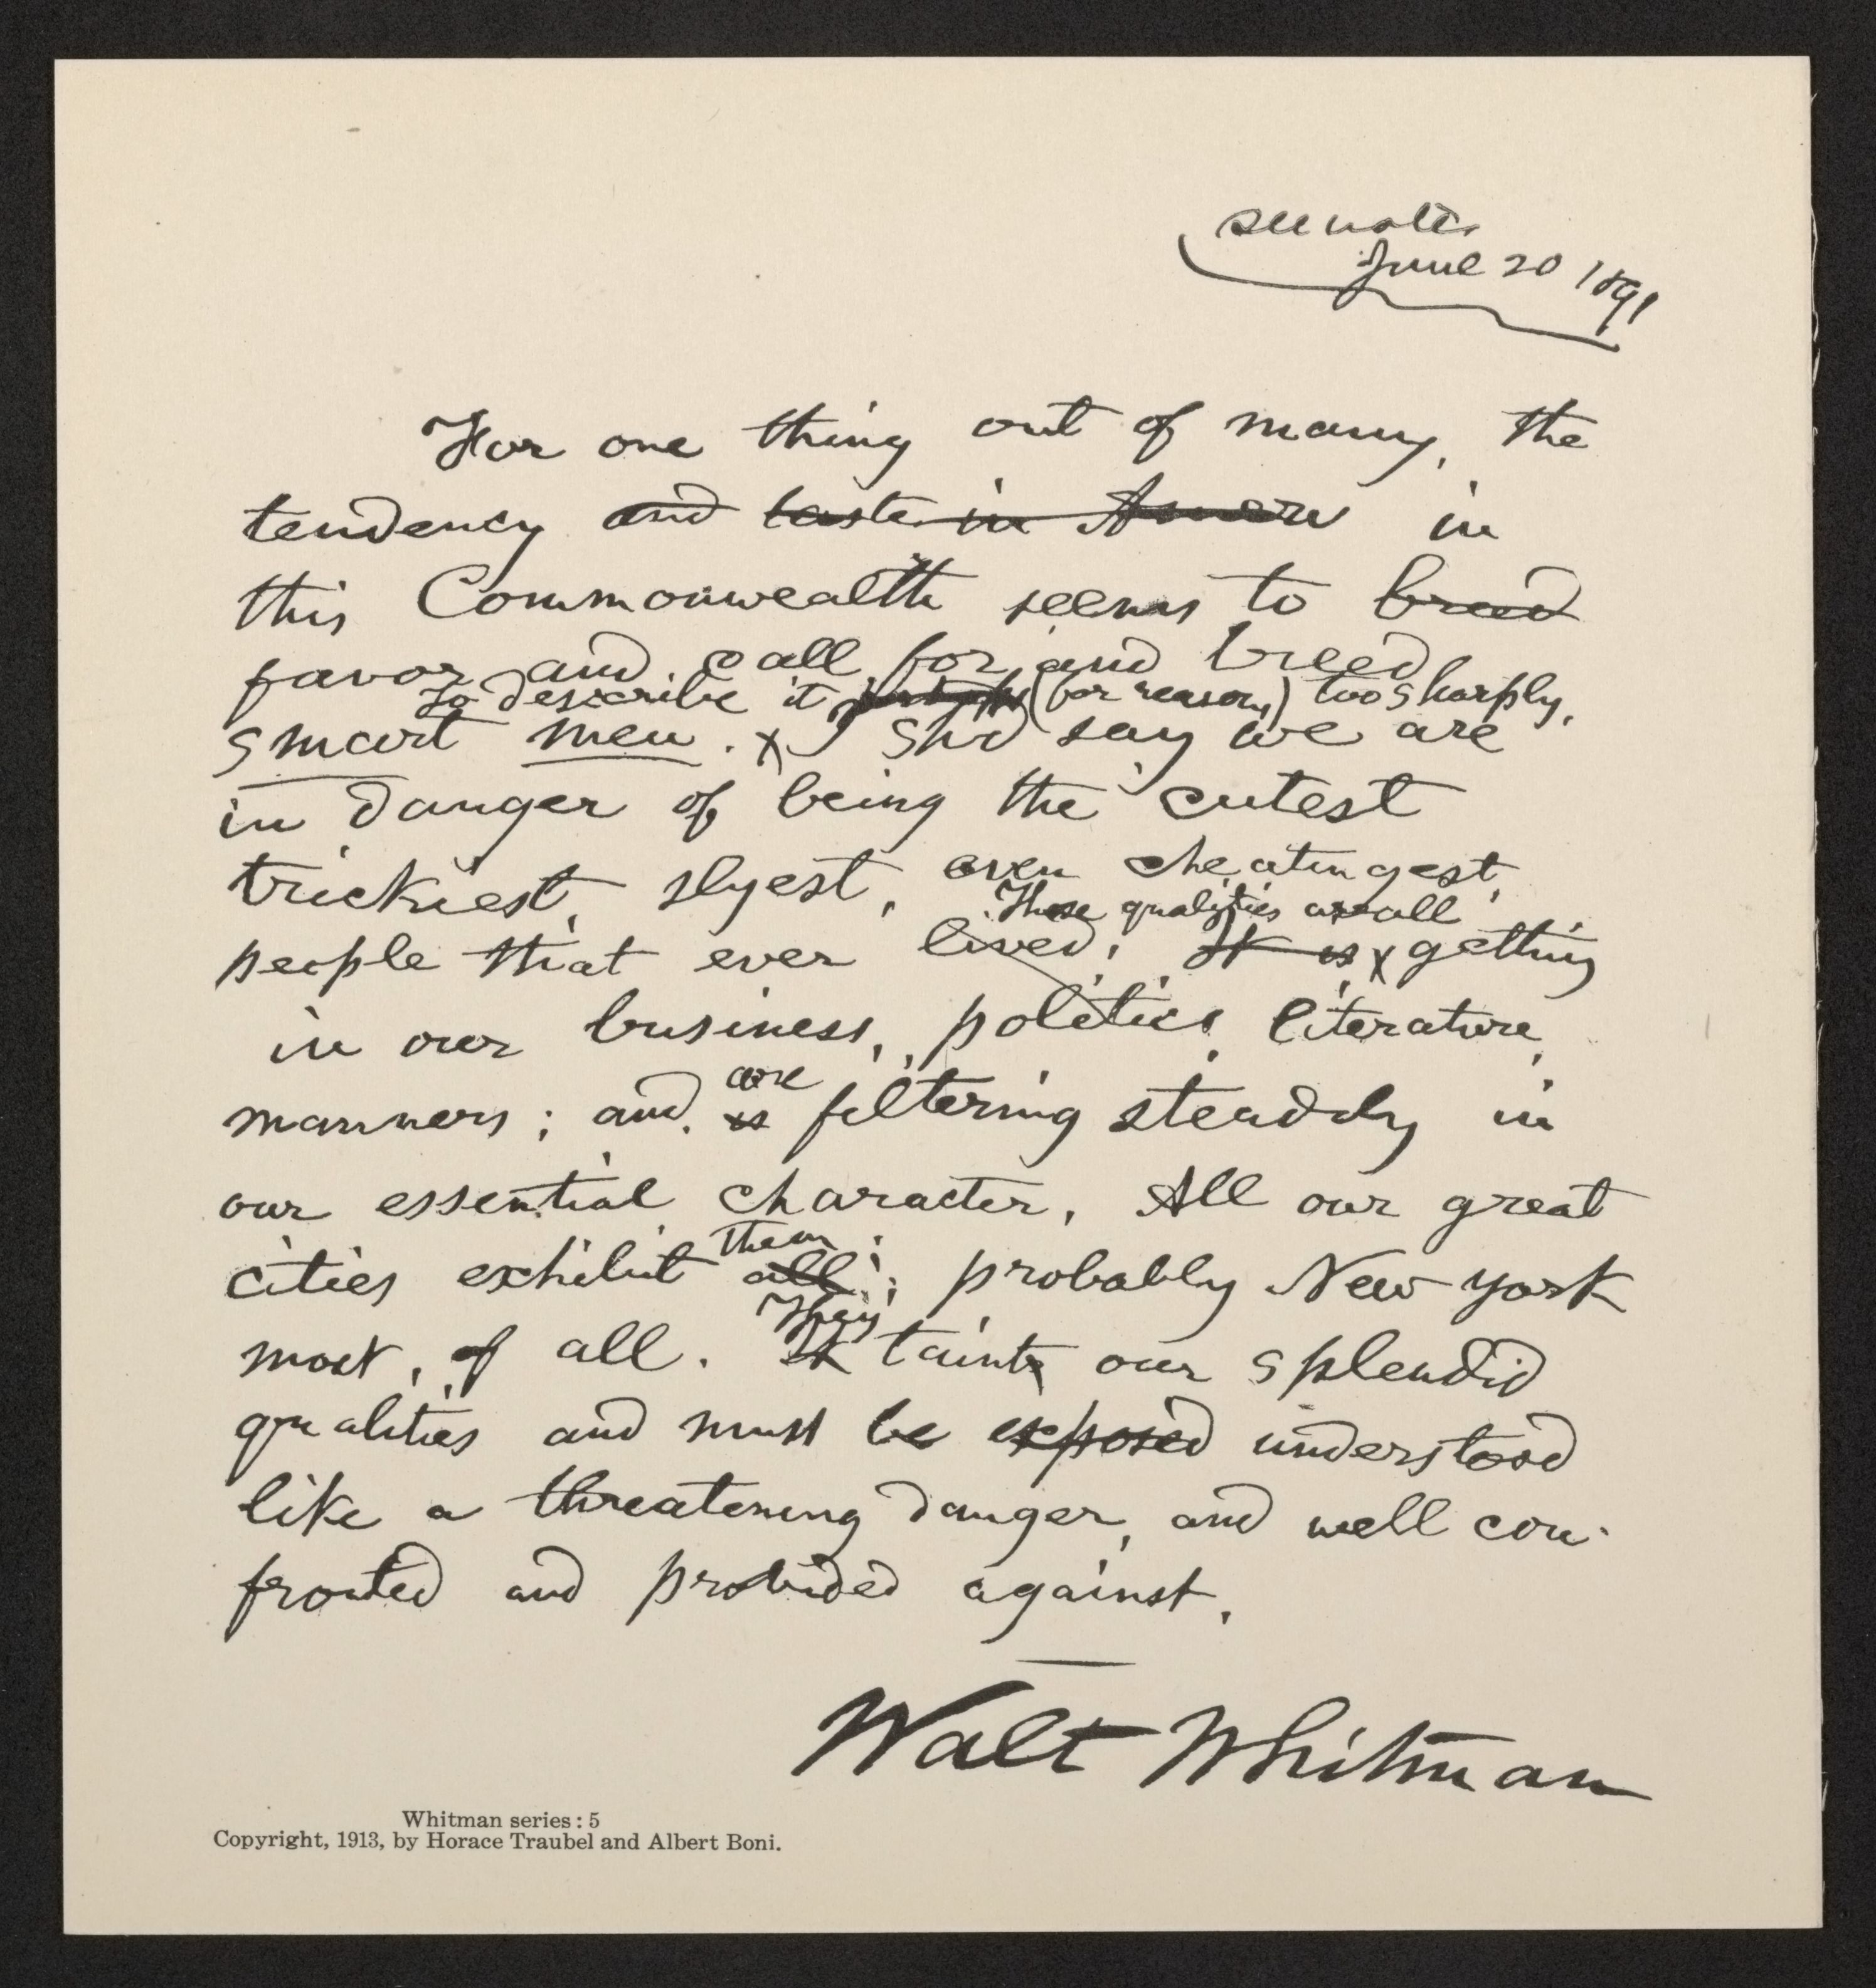 see note
June 20 1891
For one thing out of many, the
tendency and taste in Amer in
this Commonwealth seems to breed
favor and call for and breed
to describe it (for reasons) too sharply,
smart men. x I shd say we are
in danger of being the cutest
trickiest, slyest, even cheatingest,
These qualities are all
people that ever lived; It is x getting
in our business, politics, literature,
manners; and
are
is filtering steadily in
our essential character. All our great
cities exhibit
them
all; probably New York
most, of all.
They
It taints our splendid
qualities and must be exposed understood
like a threatening danger, and well con-
fronted and provided against.
Walt Whitman
Whitman series: 5
Copyright, 1913, by Horace Traubel and Albert Boni.